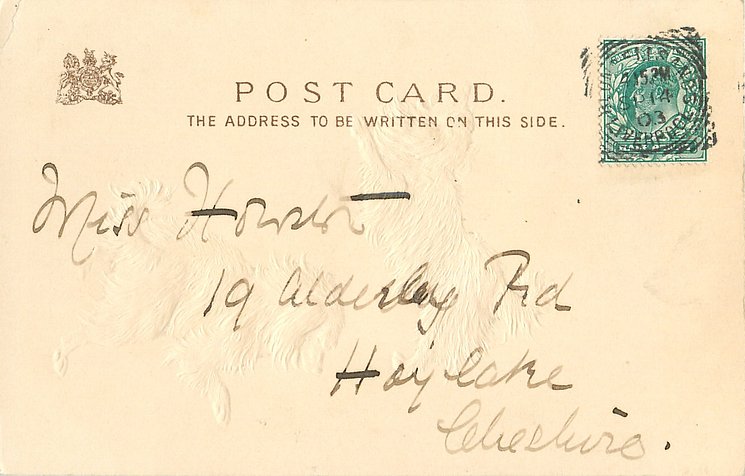 POST CARD.
THE ADDRESS TO BE WRITTEN ON THIS SIDE.
Miss
19 Alderley Rd
Hoylake
Cheshire.
03